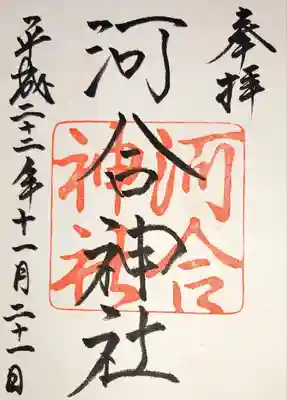 奉拝
河合神社
河合神社
平成二十二年十一月二十一日